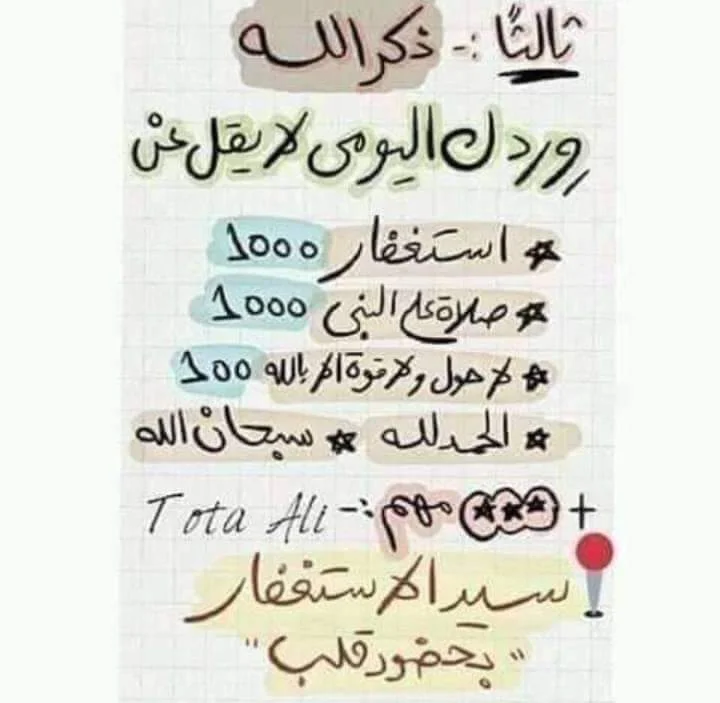 ثالثًا :- ذكر الله
وردك اليومى لا يقل عن
★ استغفار 1000
★ صلاة على النبى 1000
★ لا حول ولا قوة الا بالله 100
★ الحمد لله ★ سبحان الله
+ ★★★ مهم :- Tota Ali
سيد الاستغفار
"بحضور قلب"